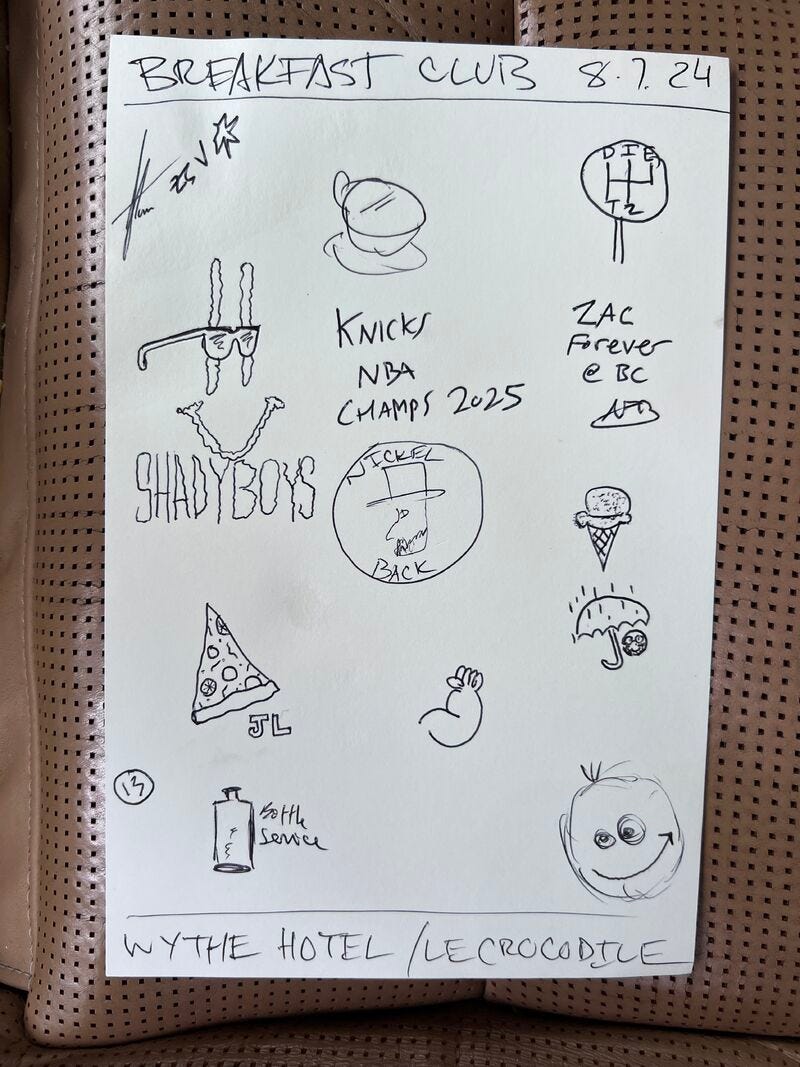 BREAKFAST CLUB 8.7.24
DIE
TZ
KNICKS
NBA
CHAMPS 2025
ZAC
Forever
@ BC
AFB
SHADYBOYS
NICKEL
BACK
JL
13
Bottle
Service
WYTHE HOTEL / LE CROCODILE